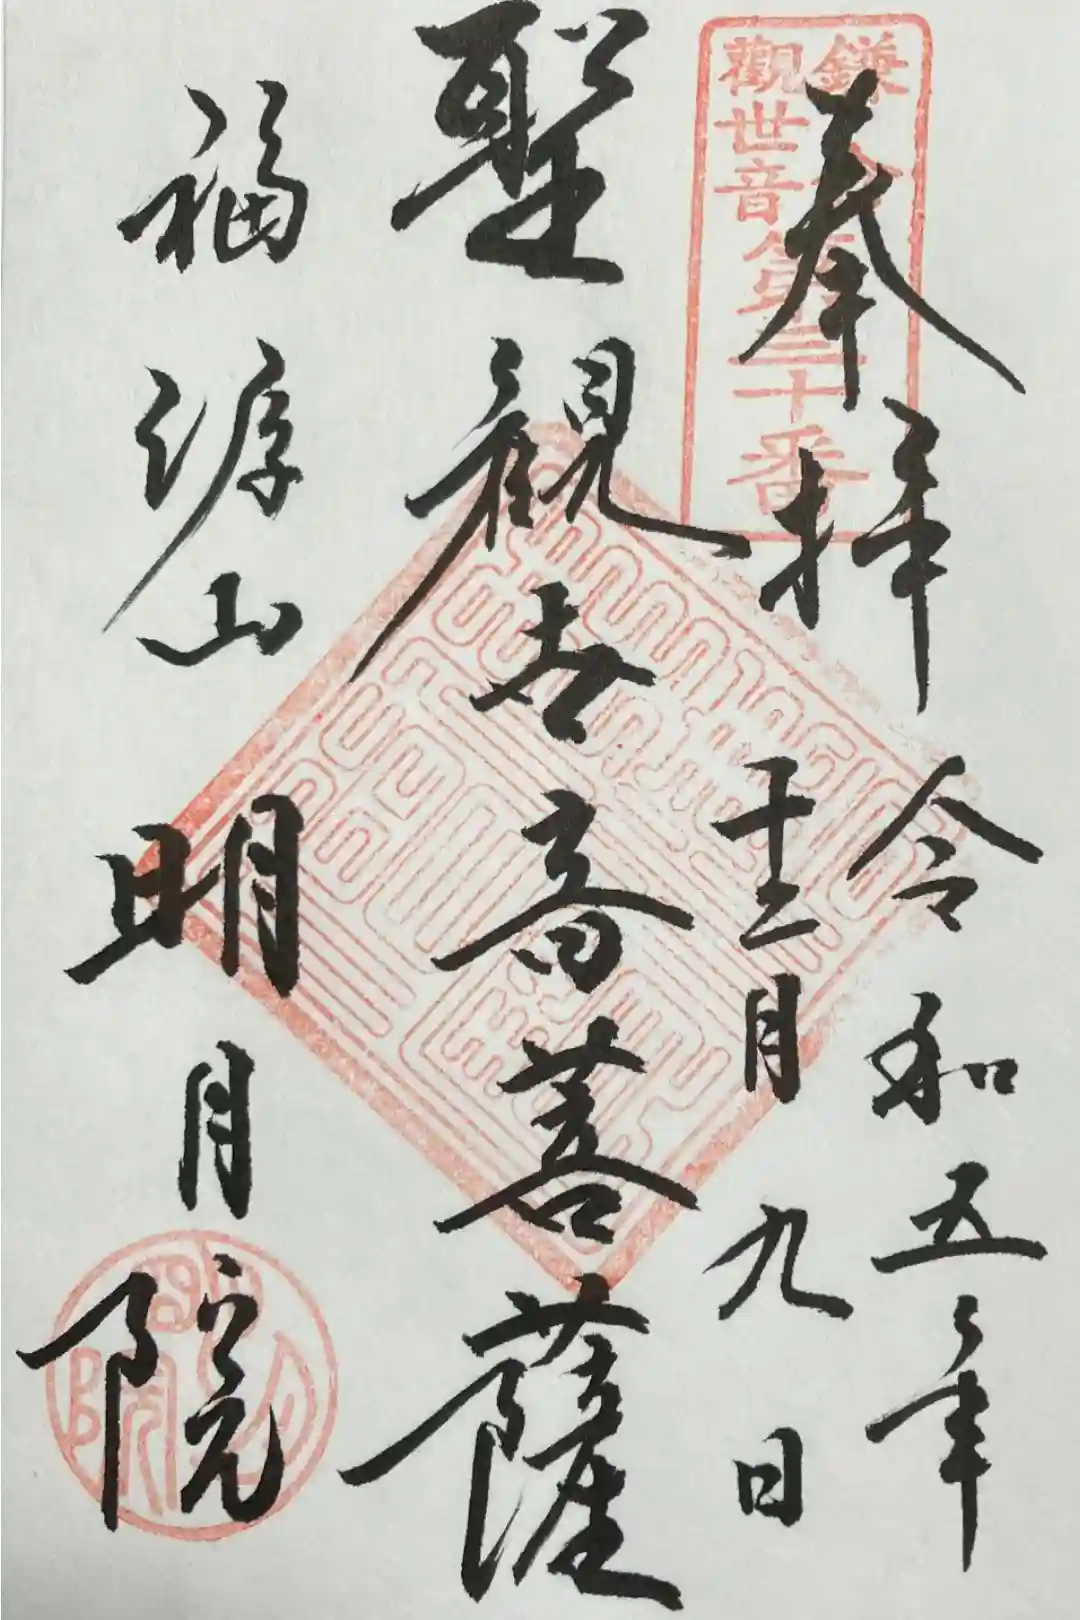 鎌倉
觀世音
第三十番
奉拝
令和五年
十二月九日
聖観世音菩薩
福源山
明月院